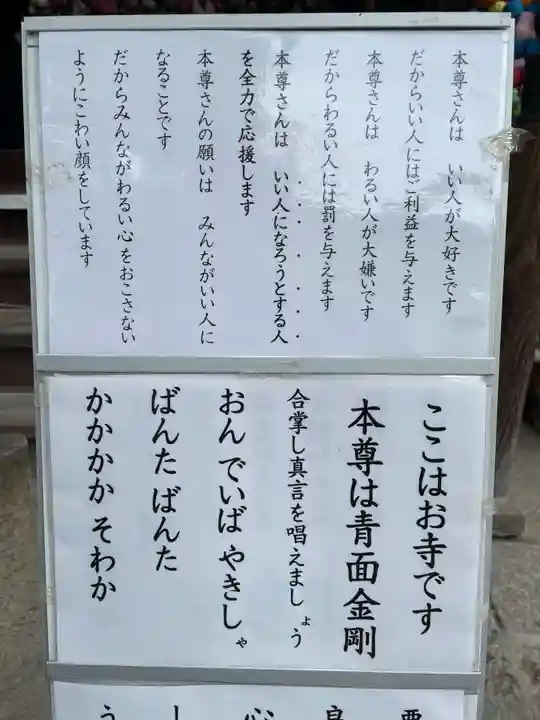 本尊さんは　いい人が大好きです
だからいい人にはご利益を与えます
本尊さんは　わるい人が大嫌いです
だからわるい人には罰を与えます
本尊さんは　いい人になろうとする人
を全力で応援します
本尊さんの願いは　みんながいい人に
なることです
だからみんながわるい心をおこさない
ようにこわい顔をしています
ここはお寺です
本尊は青面金剛
合掌し真言を唱えましょう
おん でいば やきしゃ
ばんた ばんた
かかかか そわか
心
う